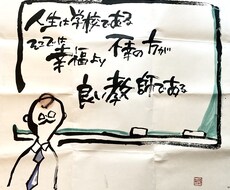 人生は学校である
そこでは
幸福より 不幸の方が
良い教師である